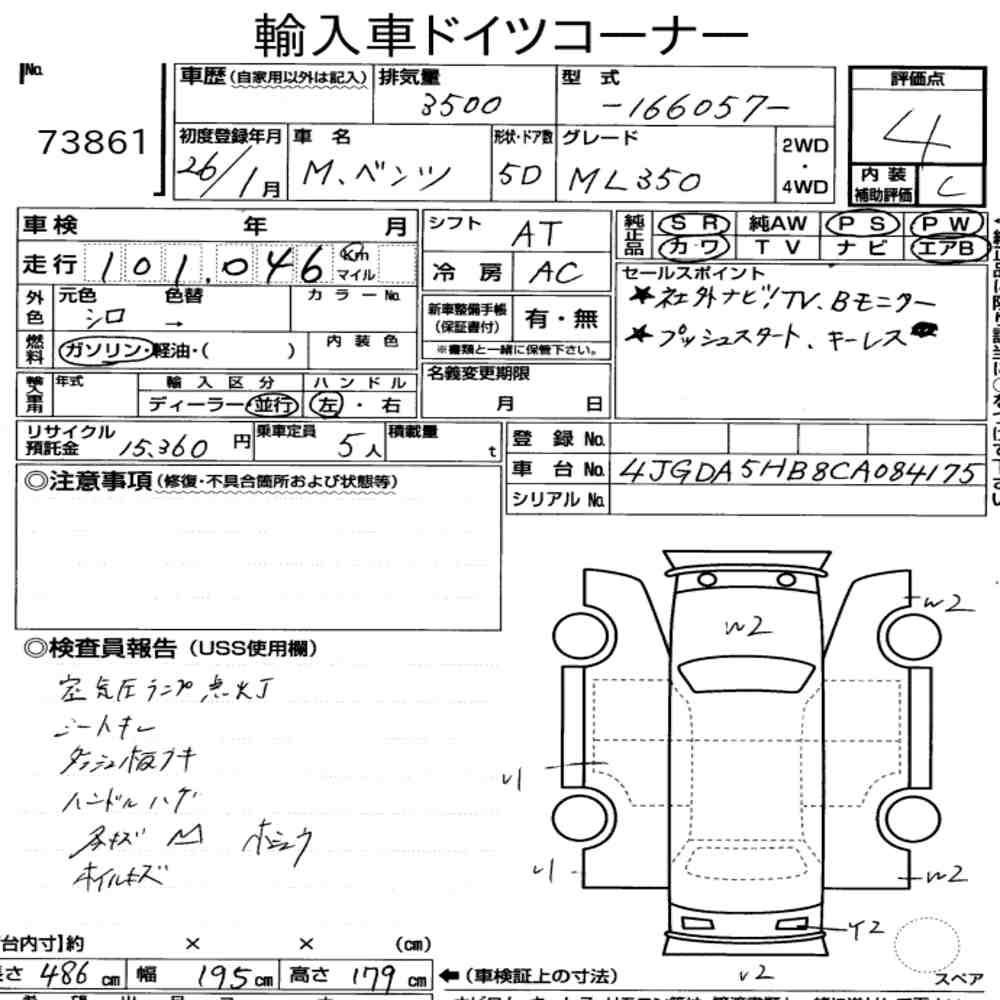 輸入車ドイツコーナー
No. 73861
車歴(自家用以外は記入) 排気量 3500 型式 -166057- 評価点 4
初度登録年月 26/1月 車名 M、ベンツ 形状・ドア数 5D グレード ML350 2WD・4WD 内装補助評価 C
車検 年 月 シフト AT 純正品 SR 純AW PS PW
走行 101,046 Km マイル 冷房 AC カワ TV ナビ エアB
外色 元色 シロ 色替 → カラーNo. 新車整備手帳(保証書付) 有・無 セールスポイント
★社外ナビ!TV、Bモニター
★プッシュスタート、キーレス
燃料 ガソリン・軽油・( ) 内装色 ※書類と一緒に保管下さい。
輸入車用 年式 輸入区分 ディーラー・並行 ハンドル 左・右 名義変更期限 月 日
リサイクル預託金 15,360円 乗車定員 5人 積載量 t 登録No.
車台No. 4JGDA5HB8CA084175
シリアルNo.
◎注意事項(修復・不具合箇所および状態等)
◎検査員報告(USS使用欄)
空気圧ランプ点灯
シートキレ
ダッシュ板ウキ
ハンドルハゲ
ホイルキズ
W2
W2
U1
U1
W2
Y2
U2
スペア
台内寸】約 × × (cm)
長さ 486cm 幅 195cm 高さ 179cm ←(車検証上の寸法)